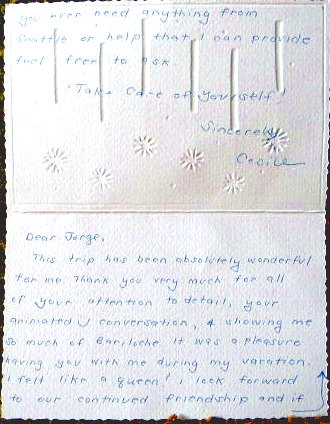 Dear Jorge,
This trip has been absolutely wonderful
for me. Thank you very much for all
of your attention to detail, your
animated conversation, & showing me
so much of Bariloche. It was a pleasure
having you with me during my vacation.
I felt like a queen! I look forward
to our continued friendship and if
you ever need anything from
Seattle or help that I can provide
feel free to ask.
Take care of yourself
Sincerely,
Cecile